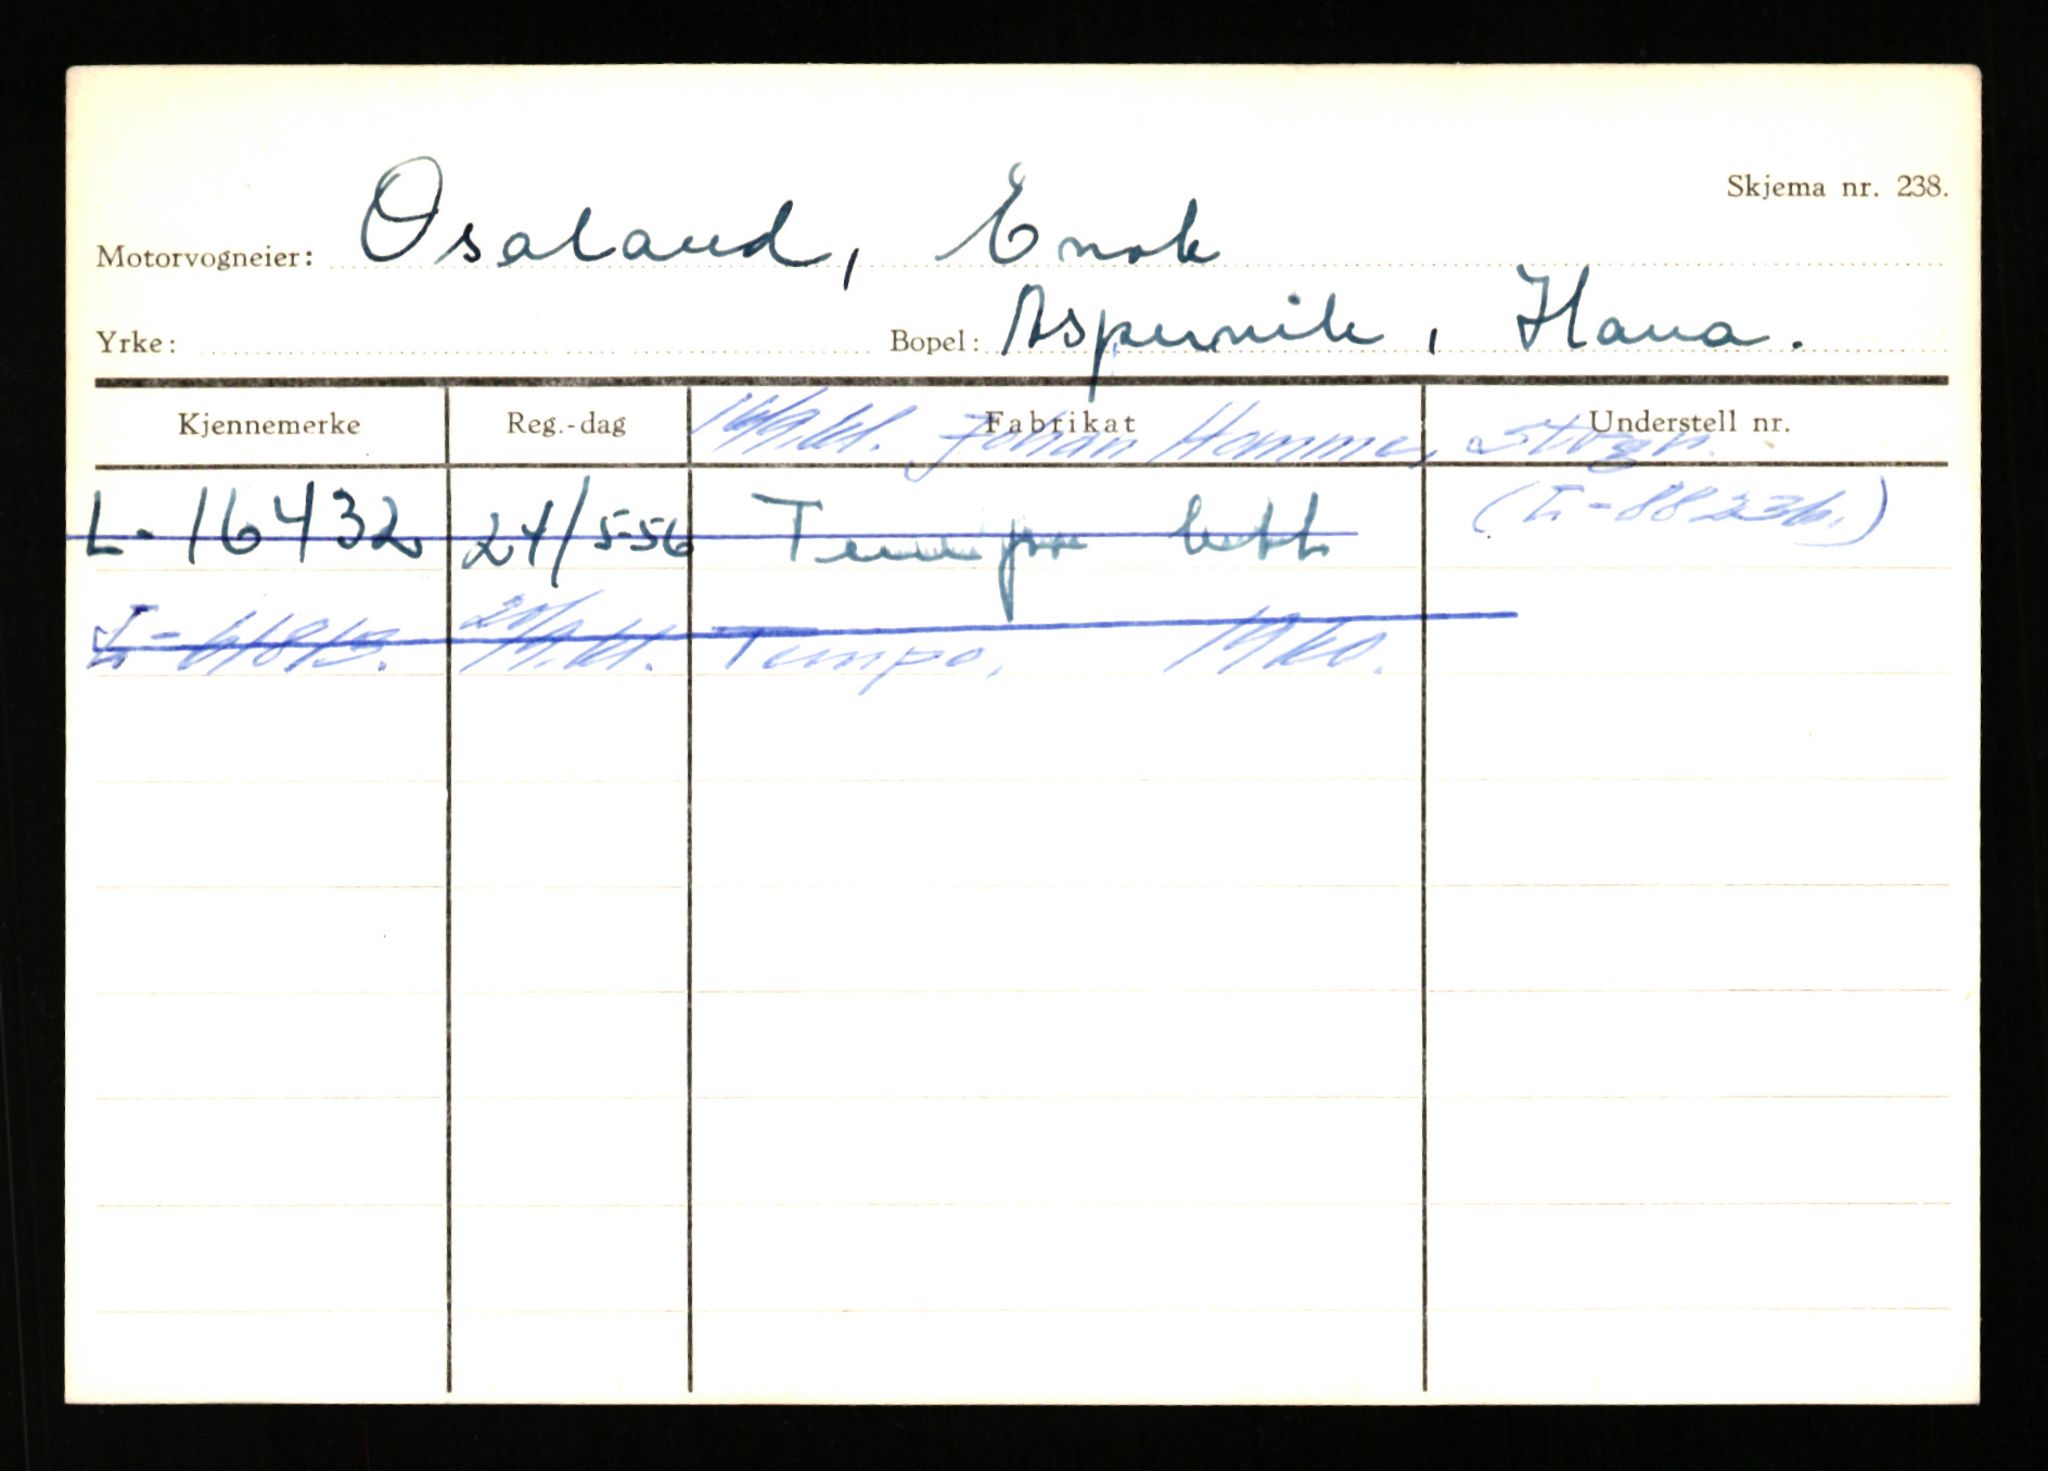 Skjema nr. 238.
Motorvogneier: Osaland, Enok
Yrke: Bopel: Aspervik, Hana.
Kjennemerke Reg.-dag Fabrikat Understell nr.
Johan Homme,
L-16432 24/5-56 Tempo lett (L-88236.)
Tempo, 1960.